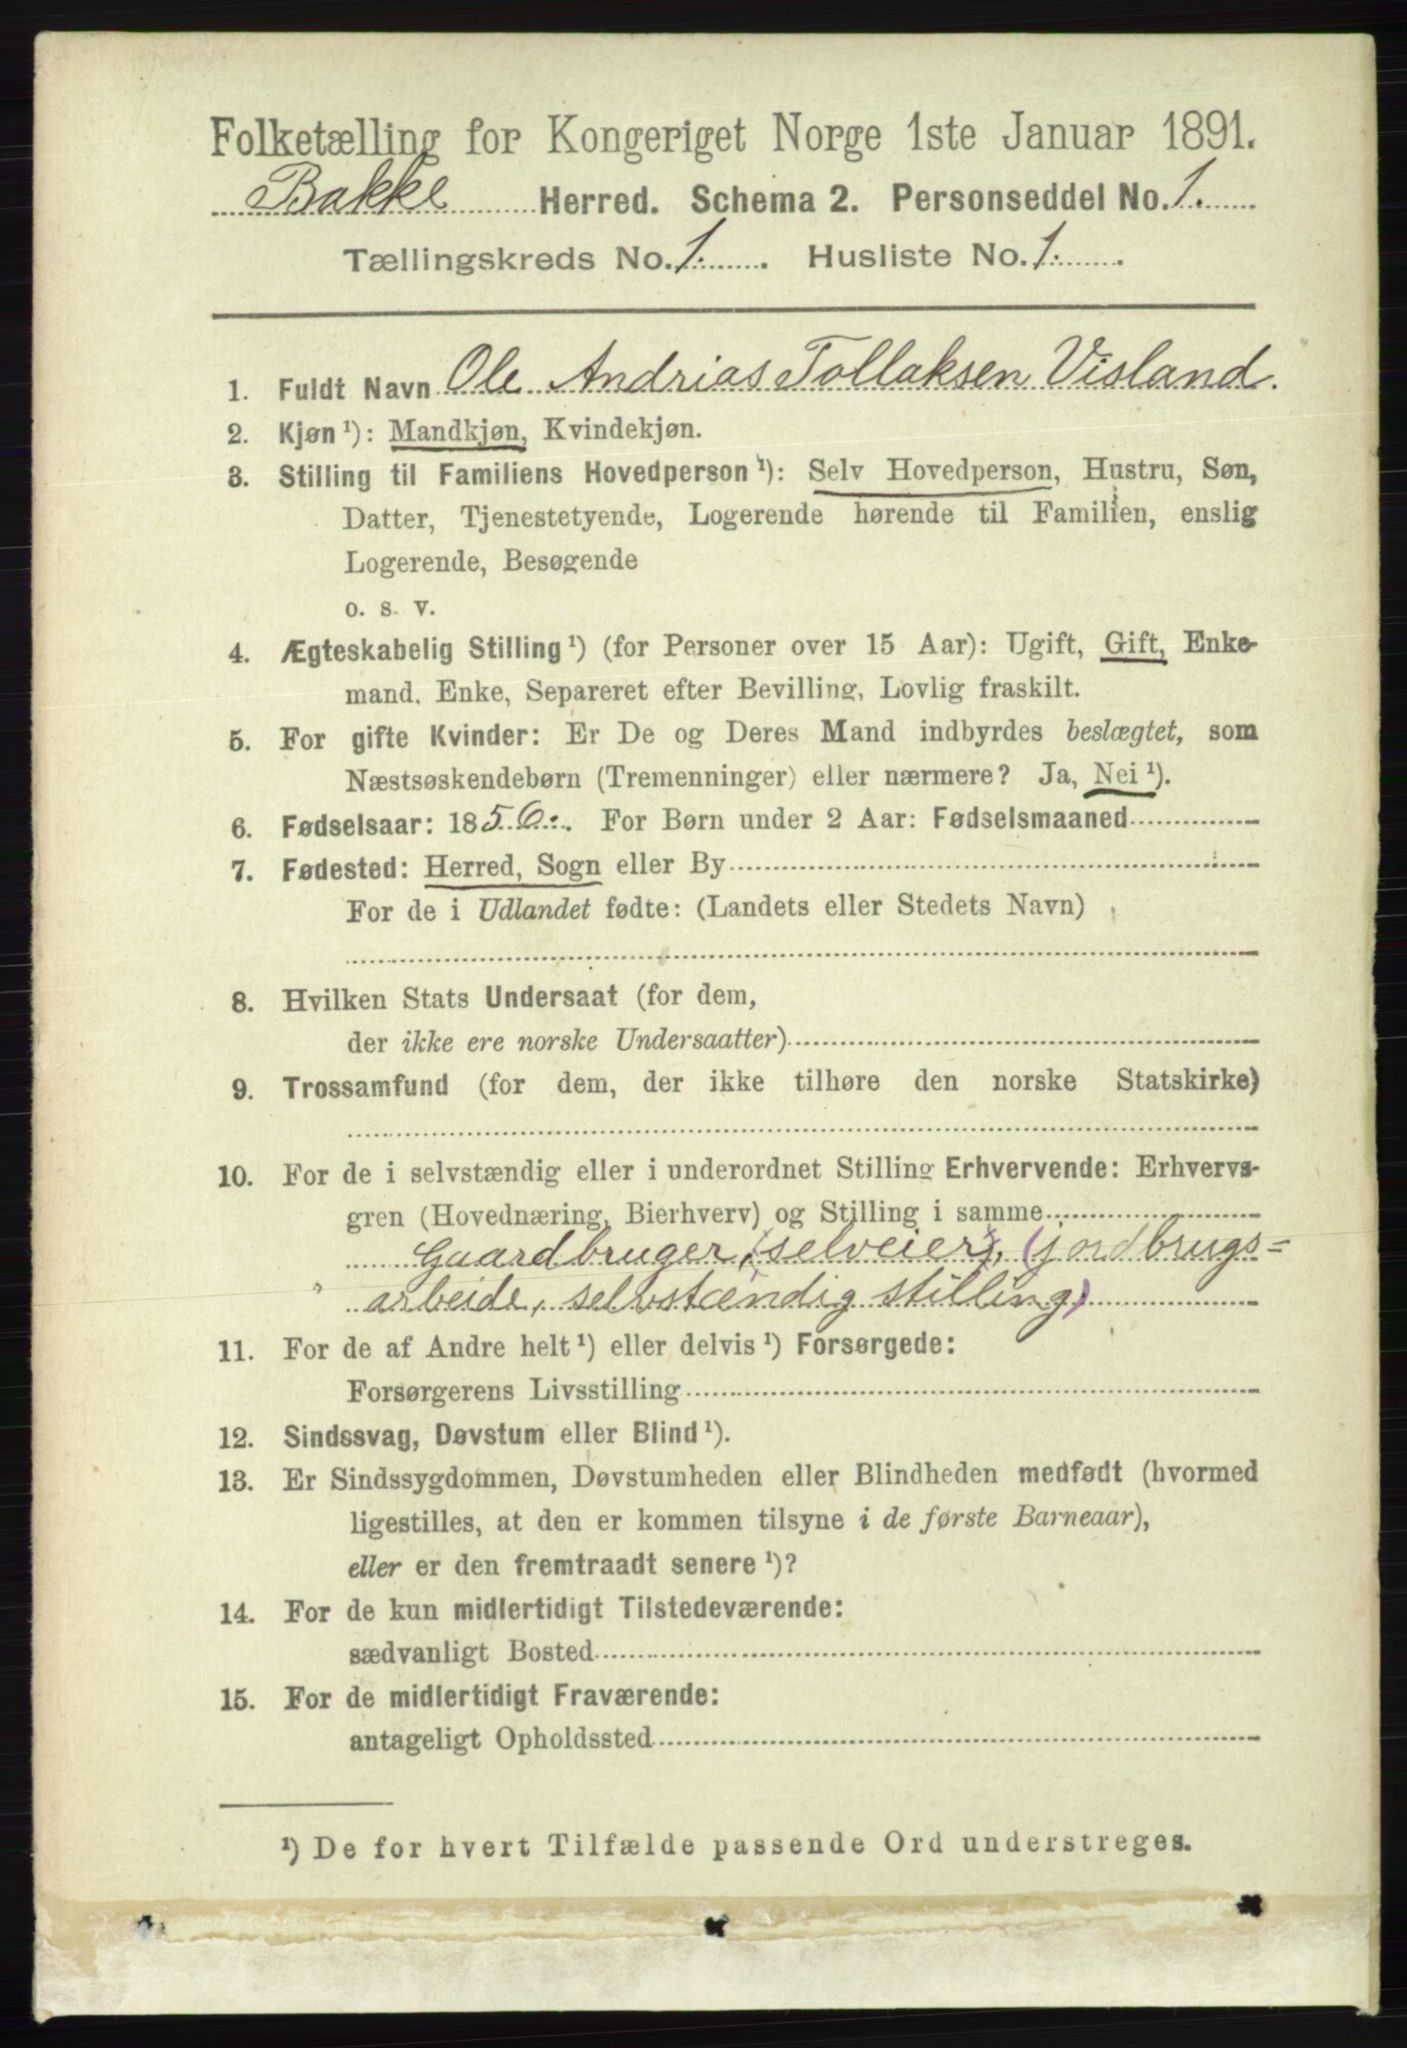 Folketælling for Kongeriget Norge 1ste Januar 1891.
Bakke Herred. Schema 2. Personseddel No. 1.
Tællingskreds No. 1. Husliste No. 1.
1. Fuldt Navn Ole Andrias Tollaksen Visland.
2. Kjøn ¹): Mandkjøn, Kvindekjøn.
3. Stilling til Familiens Hovedperson ¹): Selv Hovedperson, Hustru, Søn,
Datter, Tjenestetyende, Logerende hørende til Familien, enslig
Logerende, Besøgende
o. s. v.
4. Ægteskabelig Stilling ¹) (for Personer over 15 Aar): Ugift, Gift, Enke-
mand, Enke, Separeret efter Bevilling, Lovlig fraskilt.
5. For gifte Kvinder: Er De og Deres Mand indbyrdes beslægtet, som
Næstsøskendebørn (Tremenninger) eller nærmere? Ja, Nei ¹).
6. Fødselsaar: 1856. For Børn under 2 Aar: Fødselsmaaned
7. Fødested: Herred, Sogn eller By
For de i Udlandet fødte: (Landets eller Stedets Navn)
8. Hvilken Stats Undersaat (for dem,
der ikke ere norske Undersaatter)
9. Trossamfund (for dem, der ikke tilhøre den norske Statskirke)
10. For de i selvstændig eller i underordnet Stilling Erhvervende: Erhvervs-
gren (Hovednæring, Bierhverv) og Stilling i samme
Gaardbruger, (selveier), (jordbrugs=
arbeide, selvstændig stilling)
11. For de af Andre helt ¹) eller delvis ¹) Forsørgede:
Forsørgerens Livsstilling
12. Sindssvag, Døvstum eller Blind ¹).
13. Er Sindssygdommen, Døvstumheden eller Blindheden medfødt (hvormed
ligestilles, at den er kommen tilsyne i de første Barneaar),
eller er den fremtraadt senere ¹)?
14. For de kun midlertidigt Tilstedeværende:
sædvanligt Bosted
15. For de midlertidigt Fraværende:
antageligt Opholdssted
¹) De for hvert Tilfælde passende Ord understreges.